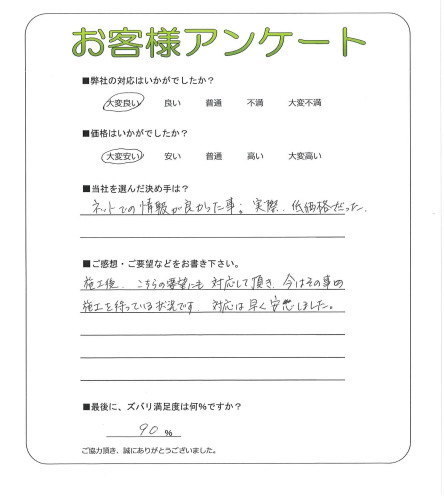 お客様アンケート
■弊社の対応はいかがでしたか？
大変良い 良い 普通 不満 大変不満
■価格はいかがでしたか？
大変安い 安い 普通 高い 大変高い
■当社を選んだ決め手は？
ネットでの情報が良かった事。実際、低価格だった.
■ご感想・ご要望などをお書き下さい。
施工後、こちらの要望にも対応して頂き、今はその事の
施工を待っている状況です。対応は早く安心しました。
■最後に、ズバリ満足度は何％ですか？
90 ％
ご協力頂き、誠にありがとうございました。